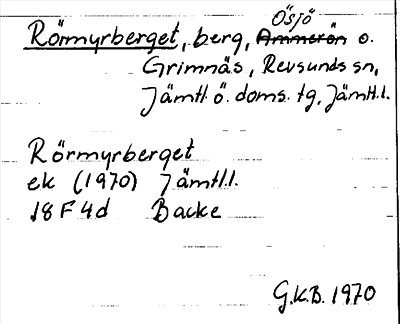 Ösjö
Rörmyrberget, berg, Ammerön o.
Grimnäs, Revsunds sn,
Jämtl. ö. doms. tg, Jämtl.l.
Rörmyrberget
ek (1970) Jämtl.l.
18 F 4d Backe
G.K.B. 1970